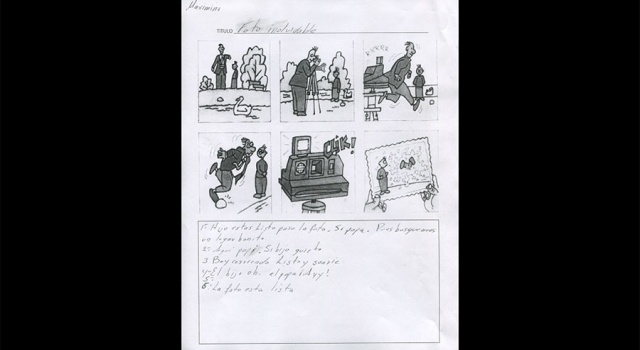 Maximino
TITULO Foto Inolvidable
RRRRR
¡CLIK!
1- Hijo estas Listo para la foto. Si papa. Pues busquemos
un lugar bonito
2- Aqui papa. Si hijo quieto
3 Boy corriendo Listo y sonrie
4- El hijo oh. el papa
5-
6- La foto esta lista